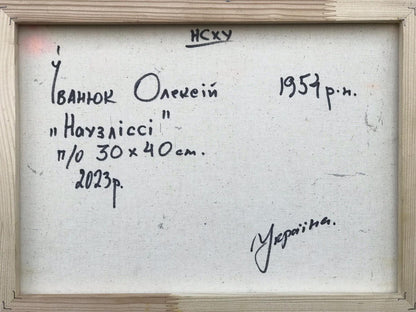 НСХУ
Іванюк Олексій 1954 р.н.
"Наузліссі"
п/о 30 x 40 см.
2023р.
Україна.